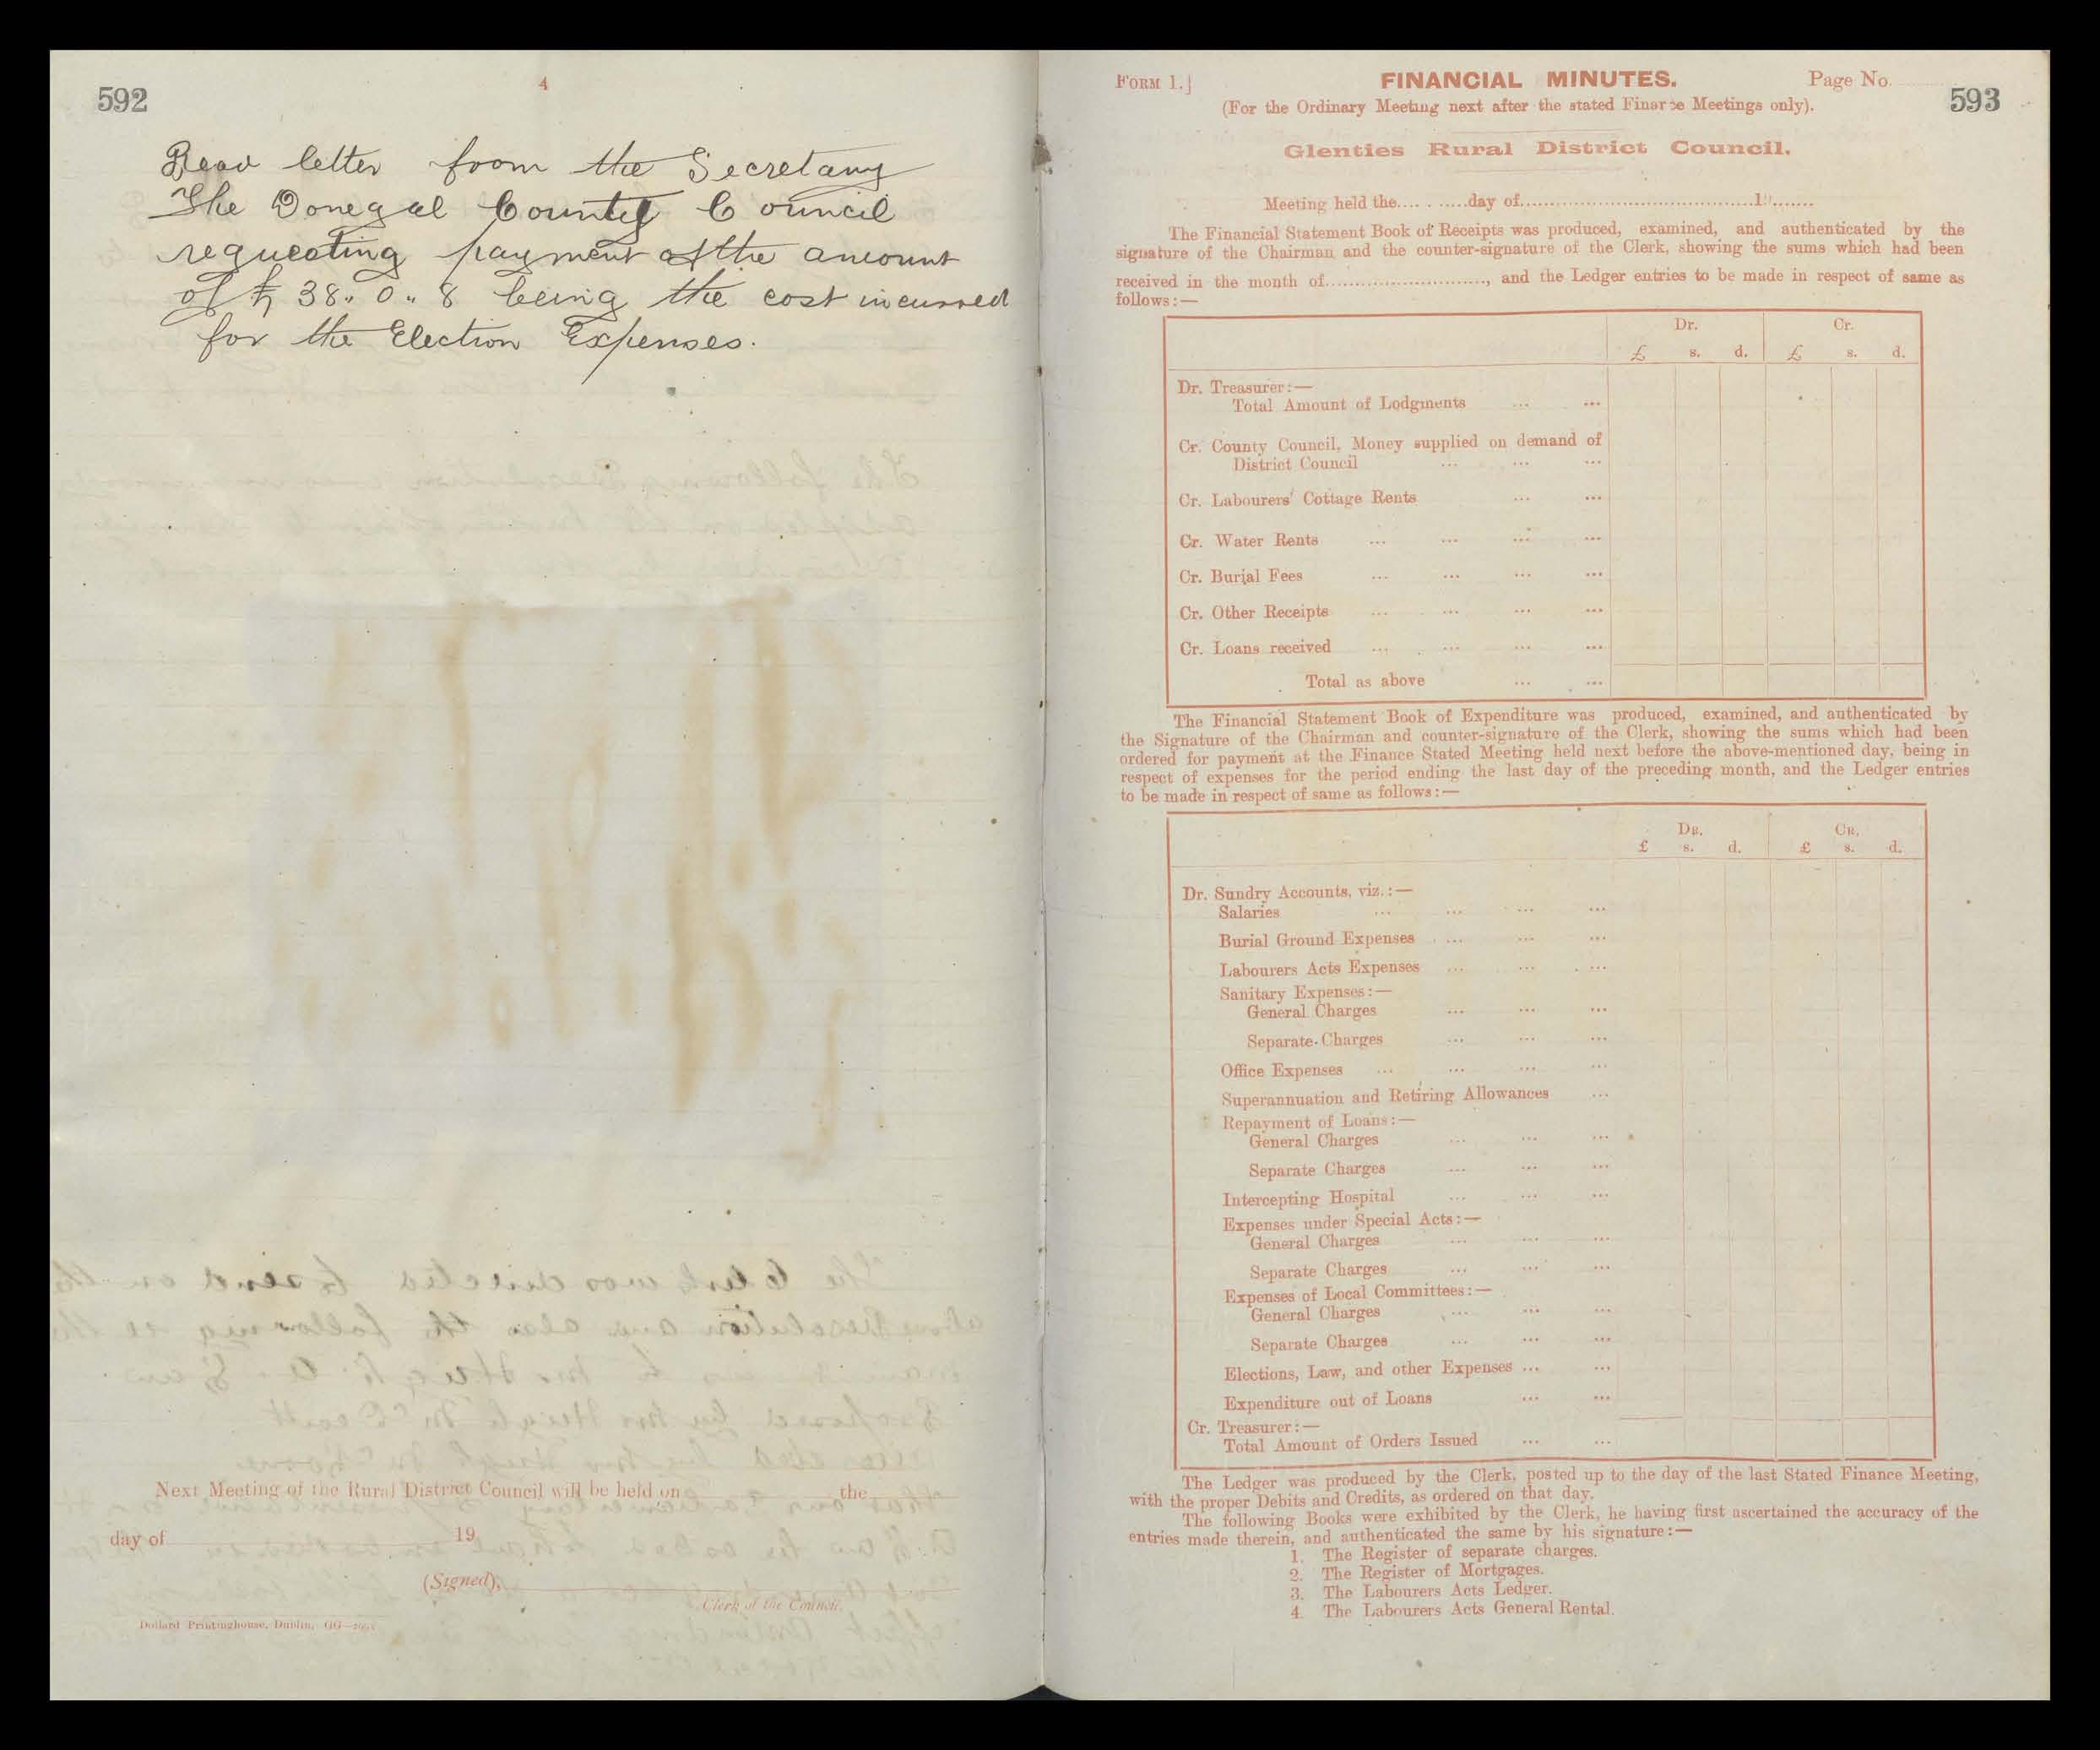 592
4
Read letter from the Secretary
The Donegal County Council
requesting payment of the amount
of £ 38„ 0„ 8 being the cost incurred
for the Election Expenses.
Next Meeting of the Rural District Council will be held on the
day of 19
(Signed),
Clerk of the Council.
Dollard Printinghouse, Dublin,
FORM 1.]
FINANCIAL MINUTES.
Page No.
593
(For the Ordinary Meeting next after the stated Finance Meetings only).
Glenties Rural District Council.
Meeting held the...........day of..........................................19.......
The Financial Statement Book of Receipts was produced, examined, and authenticated by the
signature of the Chairman and the counter-signature of the Clerk, showing the sums which had been
received in the month of............................, and the Ledger entries to be made in respect of same as
follows:—
Dr. Cr.
£ s. d. £ s. d.
Dr. Treasurer:—
Total Amount of Lodgments ... ...
Cr. County Council, Money supplied on demand of
District Council ... ... ...
Cr. Labourers' Cottage Rents ... ...
Cr. Water Rents ... ... ... ...
Cr. Burial Fees ... ... ... ...
Cr. Other Receipts ... ... ... ...
Cr. Loans received ... ... ... ...
Total as above ... ...
The Financial Statement Book of Expenditure was produced, examined, and authenticated by
the Signature of the Chairman and counter-signature of the Clerk, showing the sums which had been
ordered for payment at the Finance Stated Meeting held next before the above-mentioned day, being in
respect of expenses for the period ending the last day of the preceding month, and the Ledger entries
to be made in respect of same as follows:—
DR. CR.
£ s. d. £ s. d.
Dr. Sundry Accounts, viz.:—
Salaries ... ... ... ...
Burial Ground Expenses ... ... ...
Labourers Acts Expenses ... ... ...
Sanitary Expenses:—
General Charges ... ... ...
Separate Charges ... ... ...
Office Expenses ... ... ... ...
Superannuation and Retiring Allowances ...
Repayment of Loans:—
General Charges ... ... ...
Separate Charges ... ... ...
Intercepting Hospital ... ... ...
Expenses under Special Acts:—
General Charges ... ... ...
Separate Charges ... ... ...
Expenses of Local Committees:—
General Charges ... ... ...
Separate Charges ... ... ...
Elections, Law, and other Expenses ... ...
Expenditure out of Loans ... ...
Cr. Treasurer:—
Total Amount of Orders Issued ... ...
The Ledger was produced by the Clerk, posted up to the day of the last Stated Finance Meeting,
with the proper Debits and Credits, as ordered on that day.
The following Books were exhibited by the Clerk, he having first ascertained the accuracy of the
entries made therein, and authenticated the same by his signature:—
1. The Register of separate charges.
2. The Register of Mortgages.
3. The Labourers Acts Ledger.
4. The Labourers Acts General Rental.